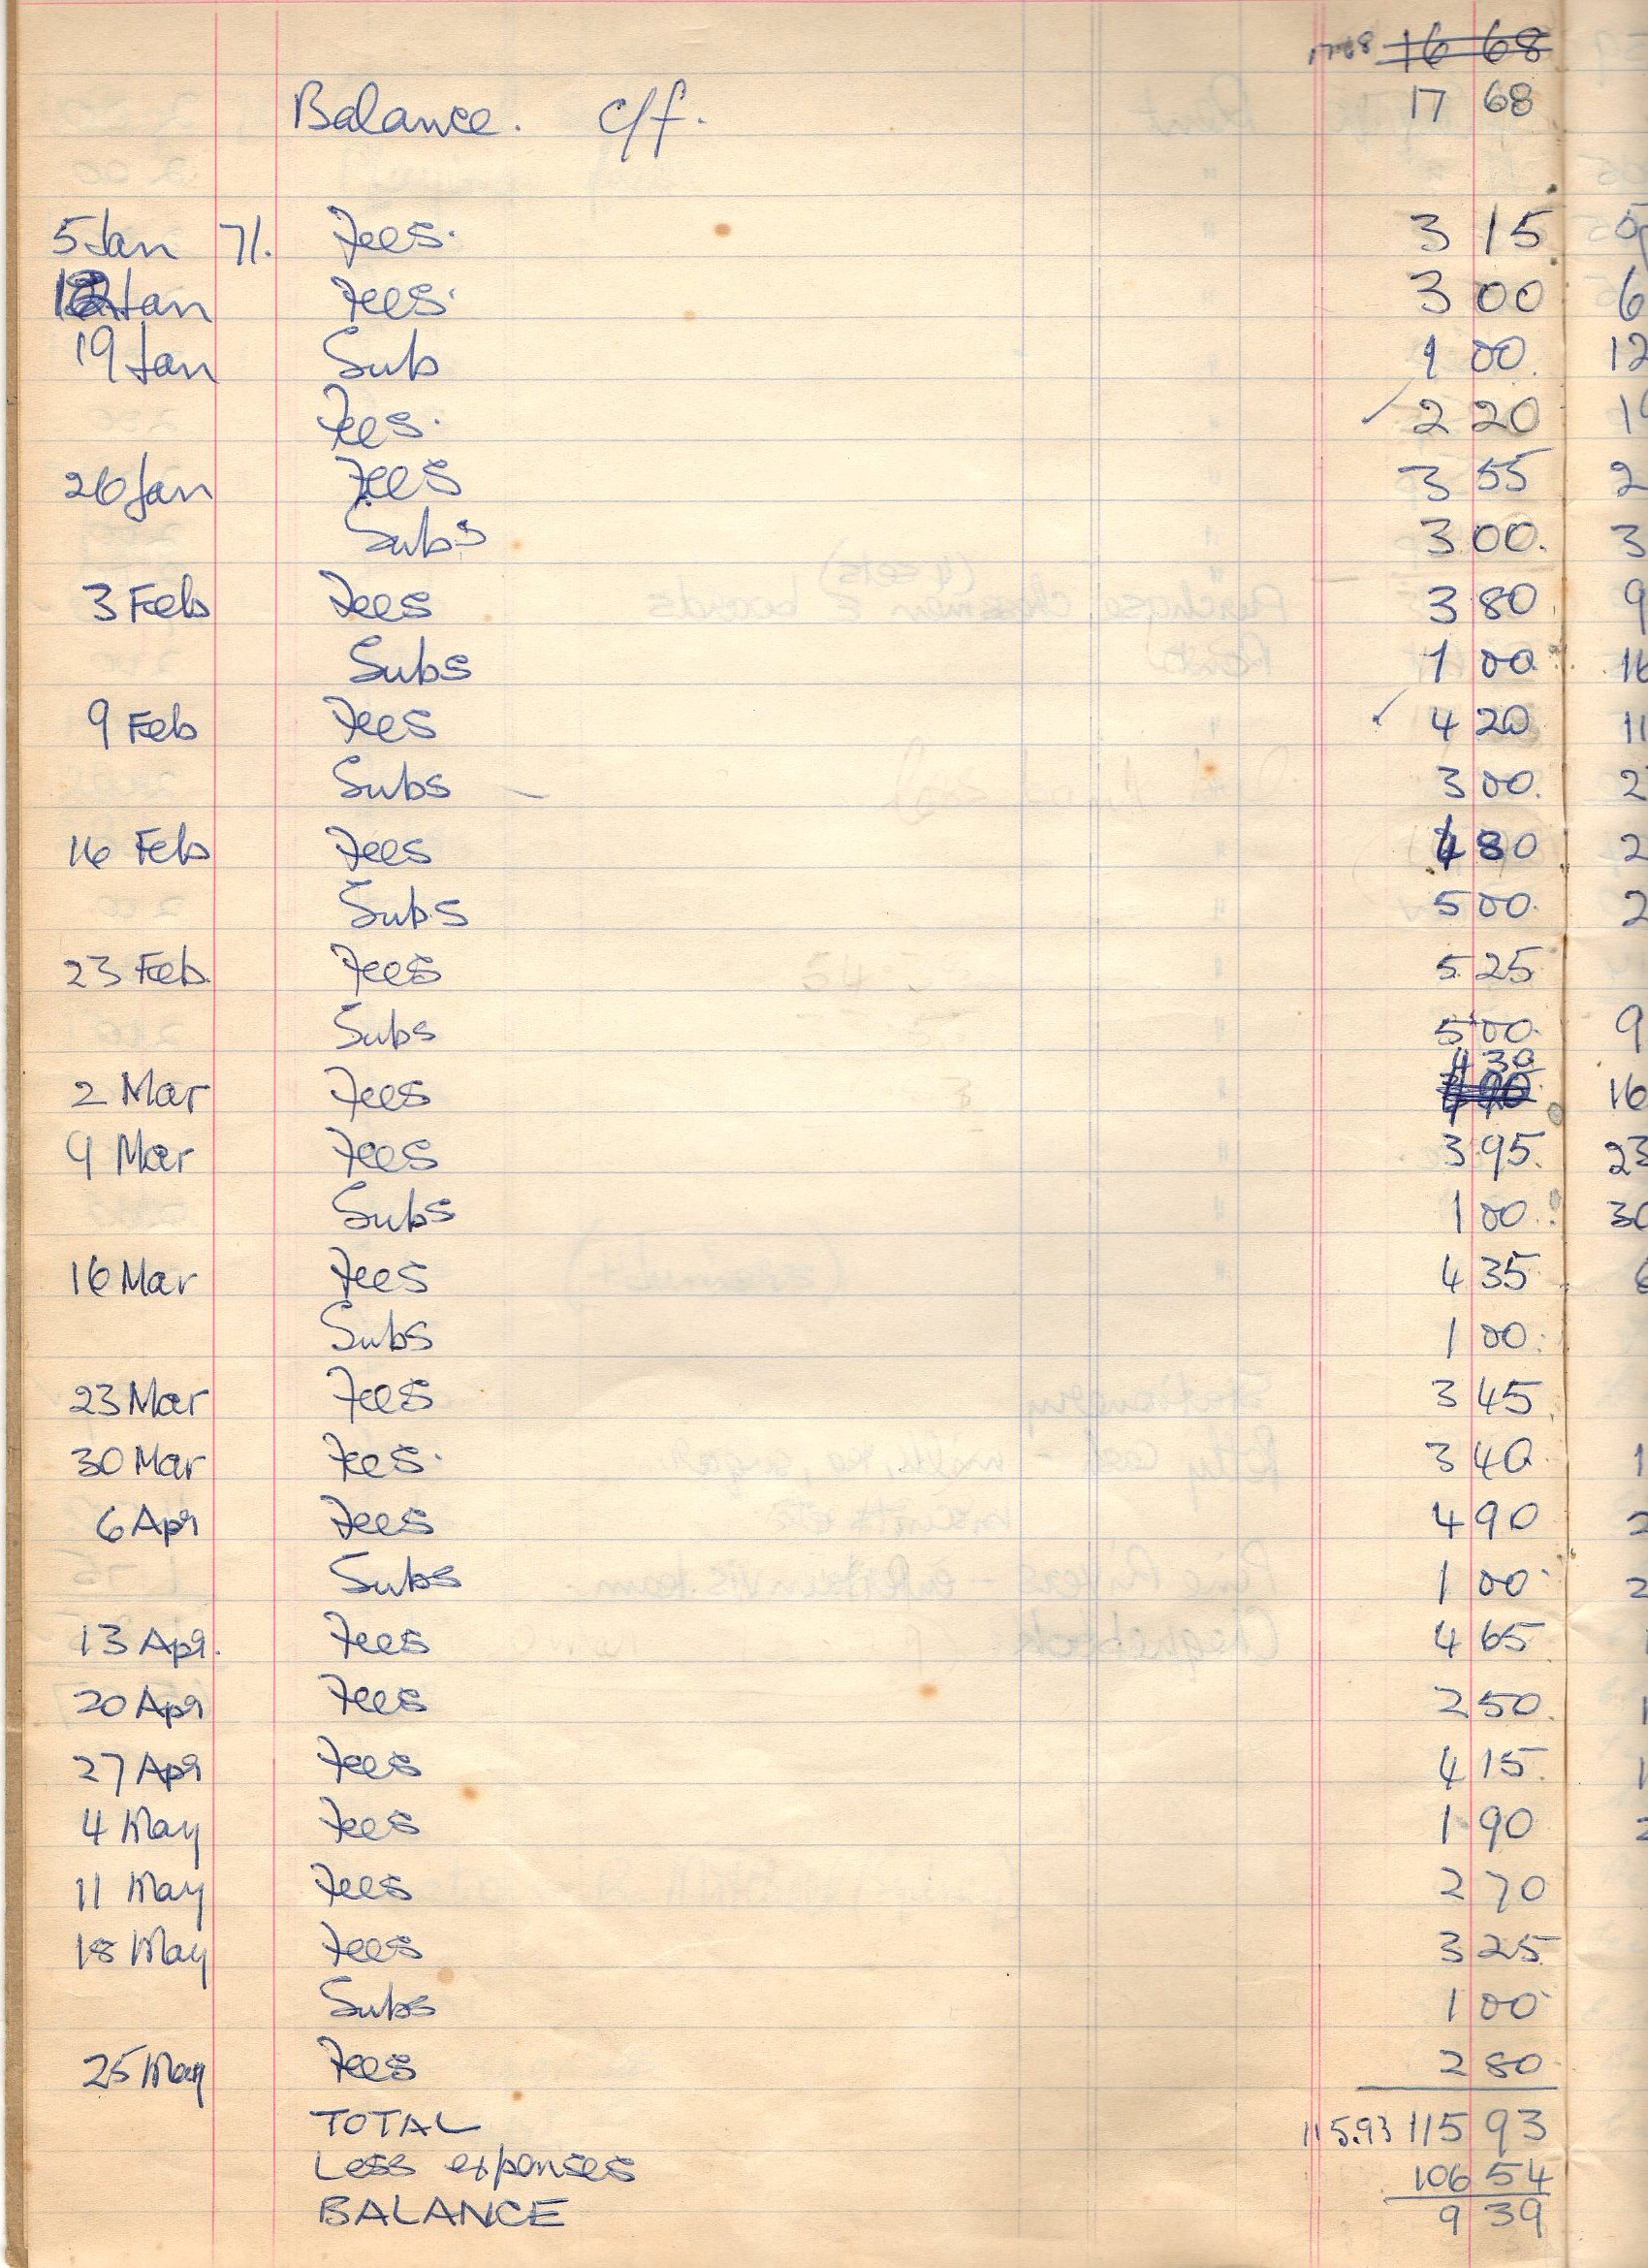 17.68 16 68
Balance. c/f. 17 68
5 Jan 71. Fees. 3 15
12 Jan Fees. 3 00 6
19 Jan Sub 1 00. 12
Fees. 2 20
26 Jan Fees 3 55 2
Subs 3 00. 3
3 Feb Fees 3 80 9
Subs 1 00 16
9 Feb Fees 4 20 11
Subs 3 00. 2
16 Feb Fees 4 80 2
Subs 5 00. 2
23 Feb. Fees 5 25
Subs 5 00. 9
4 30
2 Mar Fees 16
9 Mar Fees 3 95. 23
Subs 1 00. 30
16 Mar Fees 4 35 6
Subs 1 00.
23 Mar Fees 3 45
30 Mar Fees. 3 40. 1
6 Apr Fees 4 90 2
Subs 1 00 2
13 Apr. Fees 4 65
20 Apr Fees 2 50. 1
27 Apr Fees 4 15. 1
4 May Fees 1 90 2
11 May Fees 2 70
18 May Fees 3 25
Subs 1 00
25 May Fees 2 80
TOTAL 115.93 115 93
Less expenses 106 54
BALANCE 9 39